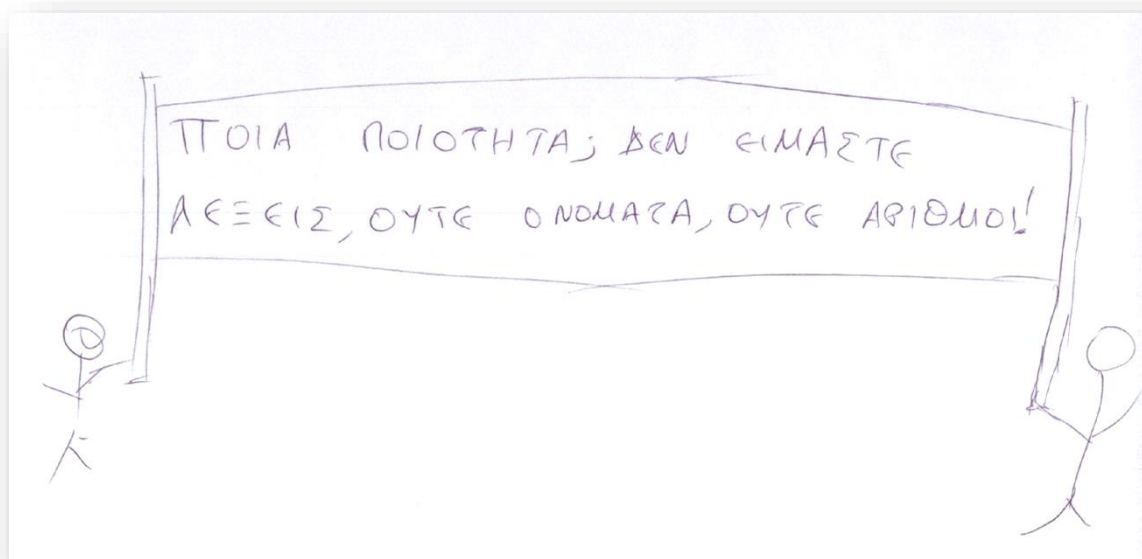 ΠΟΙΑ ΠΟΙΟΤΗΤΑ; ΔΕΝ ΕΙΜΑΣΤΕ
ΛΕΞΕΙΣ, ΟΥΤΕ ΟΝΟΜΑΤΑ, ΟΥΤΕ ΑΡΙΘΜΟΙ!